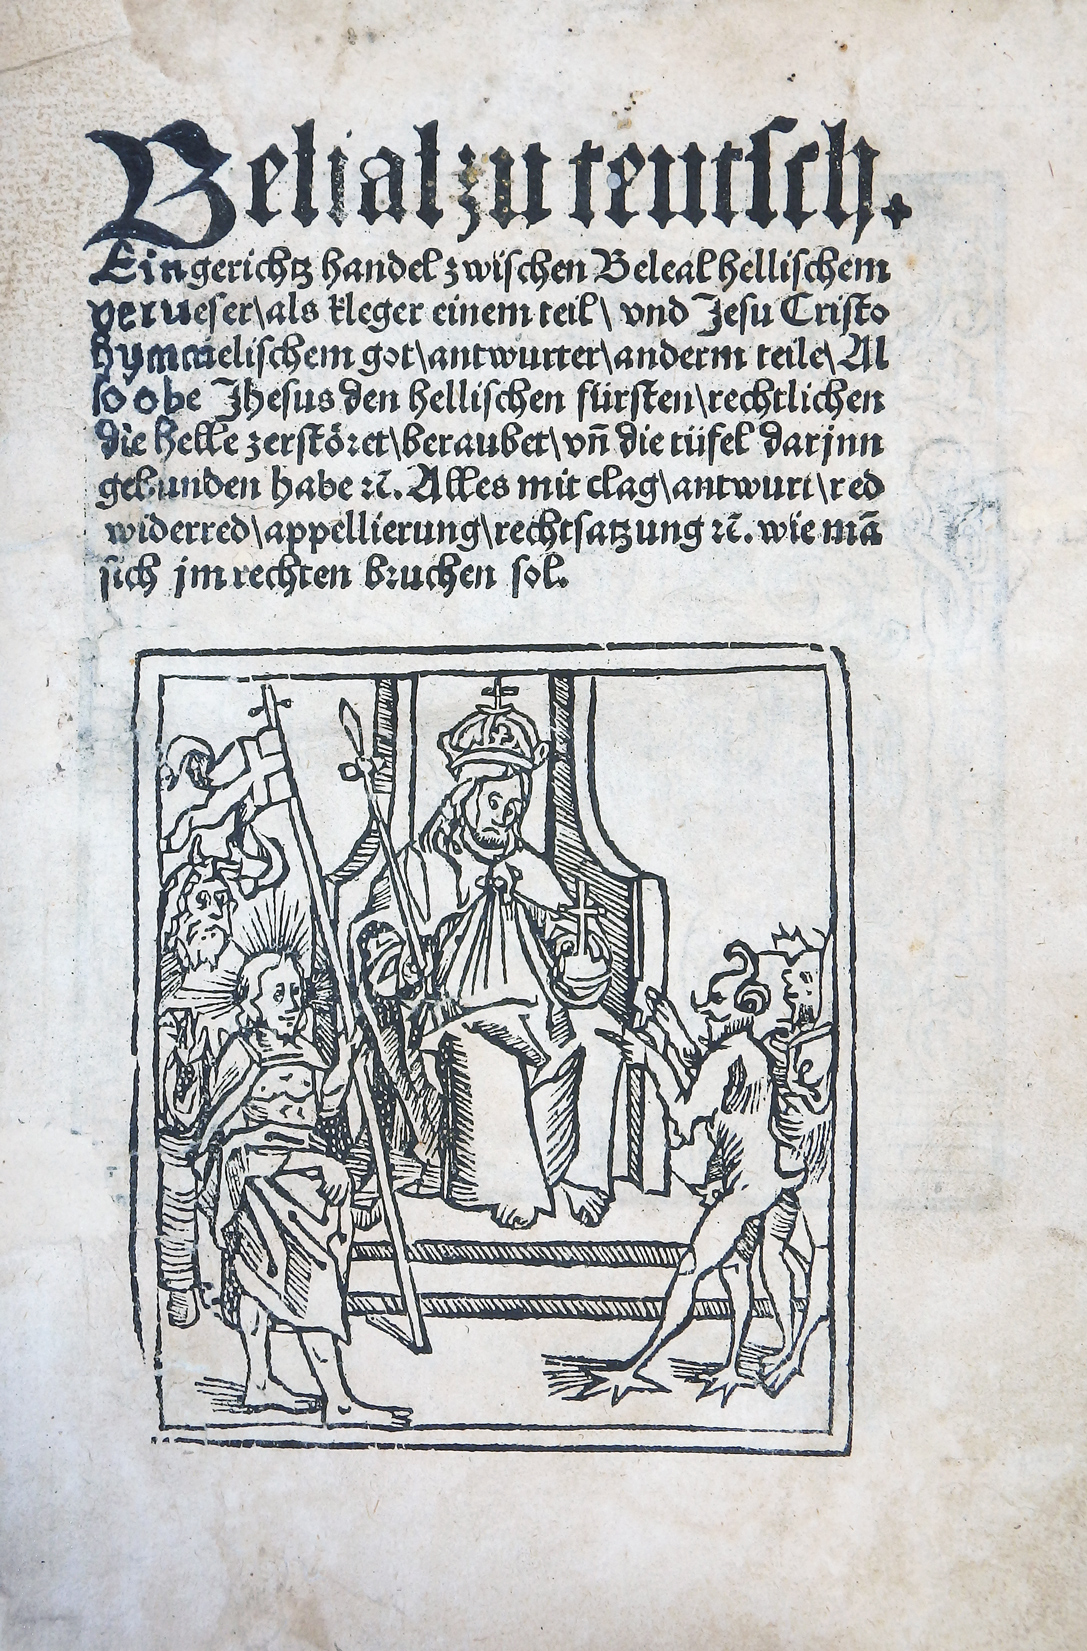 Belial zu teutsch.
Ein gerichtz handel zwischen Beleal hellischem
verweser\als kleger einem teil\ vnd Jesu Cristo
hymmelischem got\antwurter\anderm teile\ Al
so obe Jhesus den hellischen fürsten\rechtlichen
die helle zerstöret\beraubet\vn̄ die tüfel darjnn
gebunden habe ꝛc̄. Alles mit clag\antwurt\red
widerred\appellierung\rechtsatzung ꝛc̄. wie mā
sich jm rechten bruchen sol.